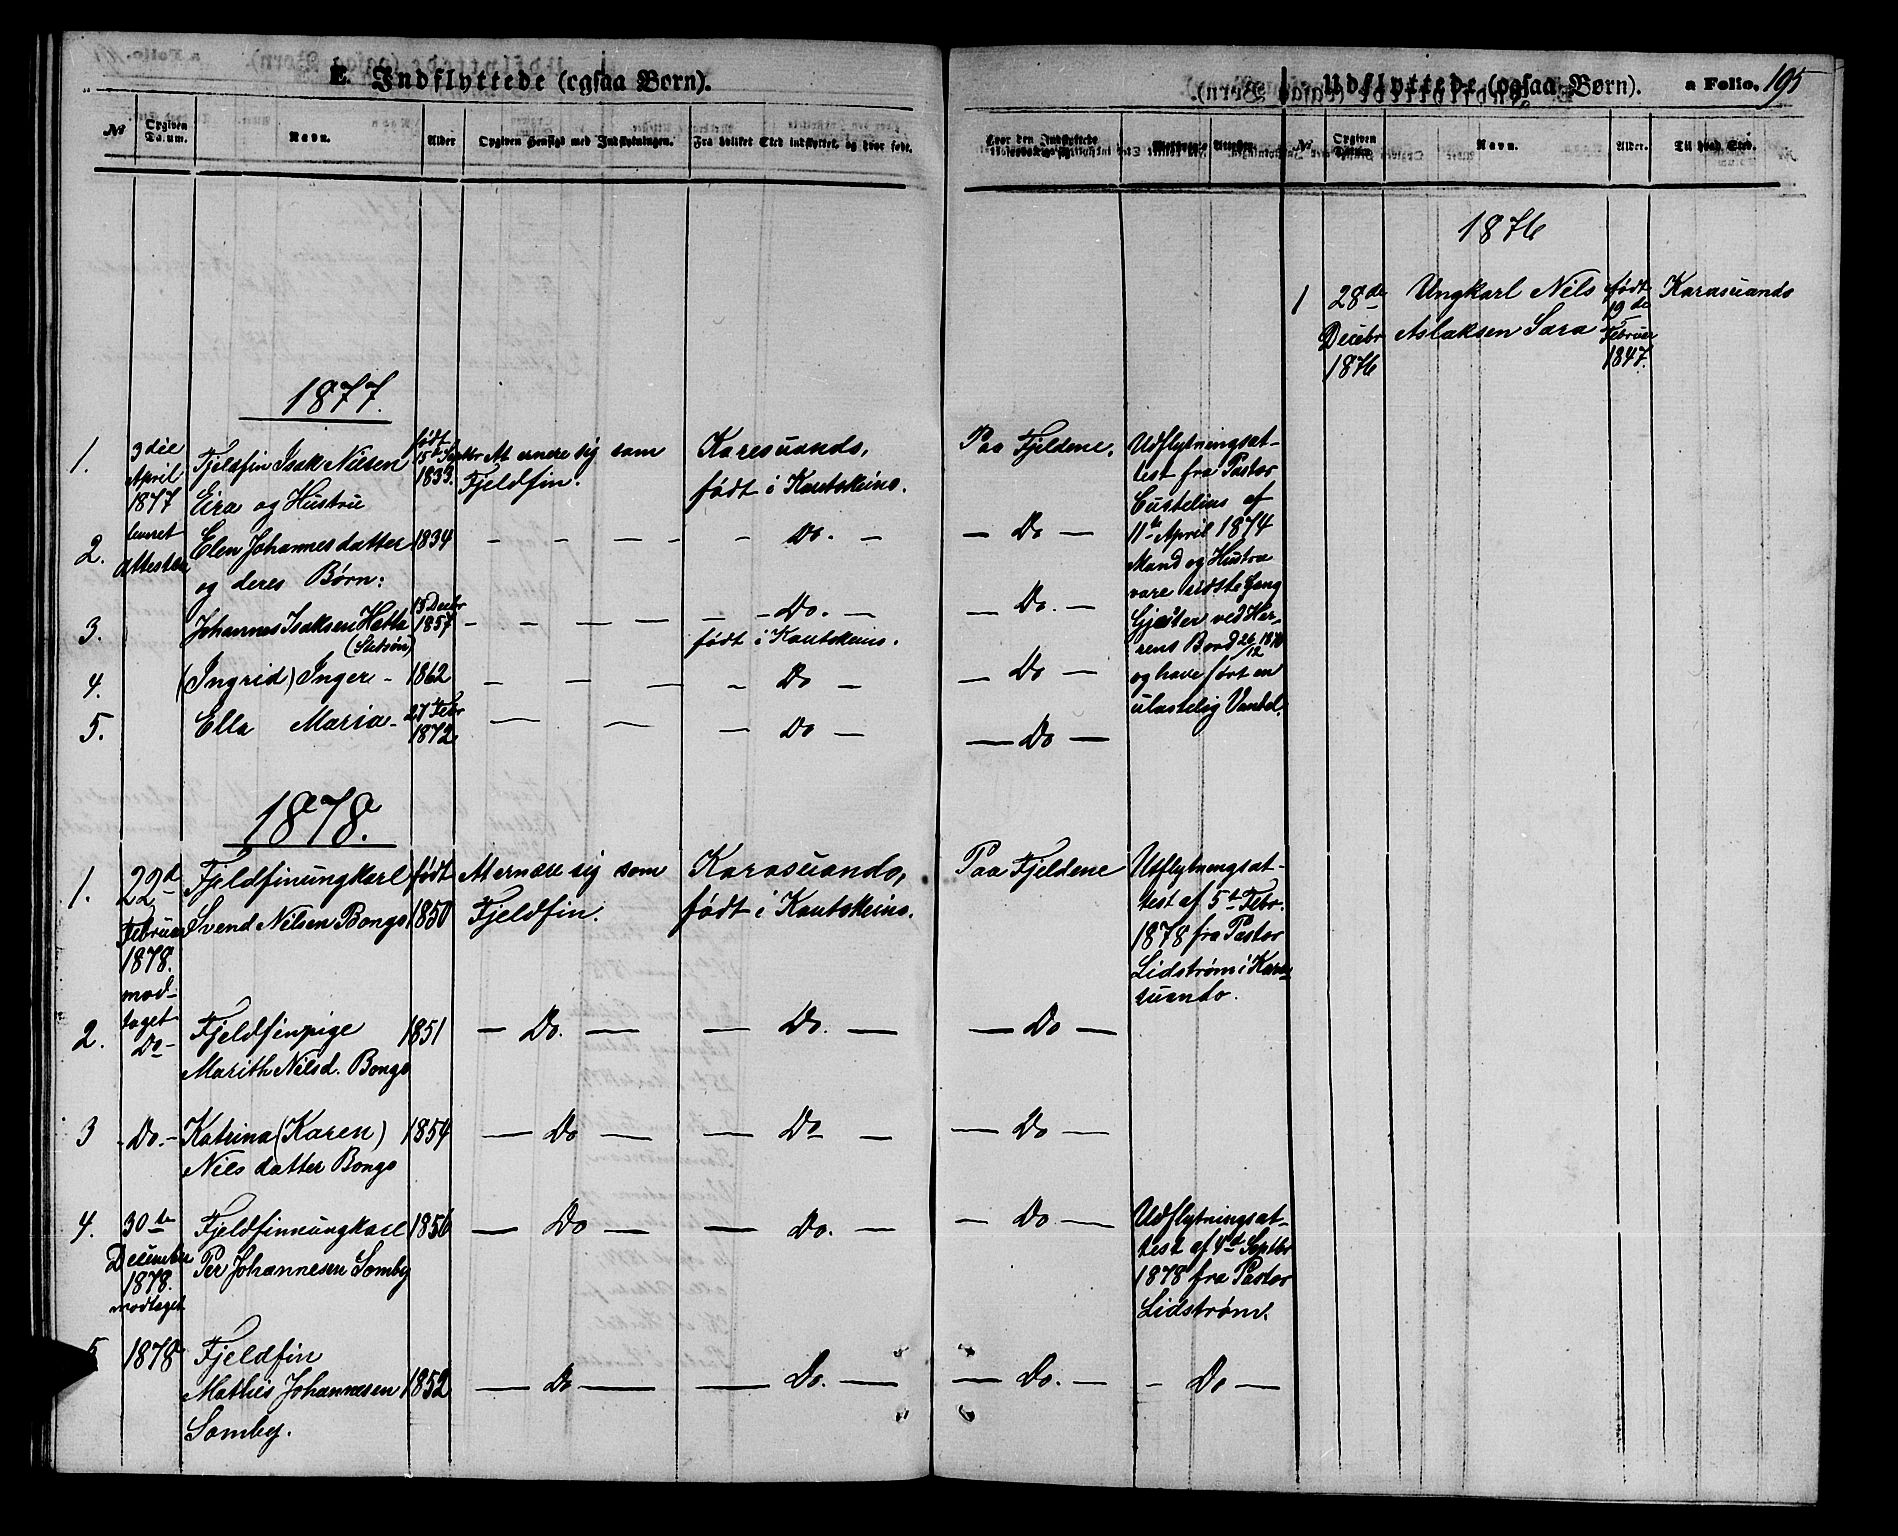 E. Indflyttede (ogsaa Børn).
Udflyttede (ogsaa Børn). a Folio. 195
№ Opgiven Datum. Navn. Alder Opgiven Hensigt med Indflytningen. Fra hvilket Sted indflyttet, og hvor født.
Anmærkn. Attester. № Opgiven Datum. Navn. Alder. Til hvad Sted.
1876
1 28de Ungkarl Nils født Karasuando
Decebr Aslaksen Sara 19de
1876 Februar
1847.
1877.
1. 3die Fjeldfin Isak Nilsen født At ernære sig som Karesuando, Paa Fjeldene. Udflytningsat-
April Eira og Hustru 15de Septbr Fjeldfin. født i Kautokeino. test fra Pastor
1877 1833. Custelius af
leveret 11te April 1874
2. Attester Elen Johannesdatter 1834 — — — — — Do. — — Do — Mand og Hustru
og deres Børn: vare sidste Gang
3. Johannes Isaksen Hætta 13 Decbr 1857 — — — — — Do. — — Do. — Gjæster ved Her-
(Stebsøn) født i Kautokeino. rens Bord 26/12 1870
4. (Ingrid) Inger - 1862 — — — — Do — — Do — og have ført en
5. Ella Maria - 27 Febr — — — Do — — Do — ulastelig Vandel.
1872
1878.
1. 22d Fjeldfinungkarl født At ernære sig som Karasuando, Paa Fjeldene Udflytningsat-
Februar Svend Nilsen Bongo 1850 Fjeldfin. født i Kautokeino. test af 5te Febr.
1878. 1878 fra Pastor
mod- Lidstrøm i Kare-
taget suando.
2. Do - Fjeldfinpige 1851 — Do. — — Do. — — Do —
Marith Nilsd. Bongo
3 - Do. - Katrina (Karen) 1854 — Do — — Do — — Do —
Nilsdatter Bongo
4. 30te Fjeldfinnungkarl 1856 — Do — — Do. — — Do — Udflytningsat-
December Per Johannesen Somby test af 4d Septbr
1878. 1878 fra Pastor
modtaget Lidstrøm.
5 1878 Fjeldfin
Mathis Johannesen 1852 — Do — — Do. — — Do. — - Do —
Somby.